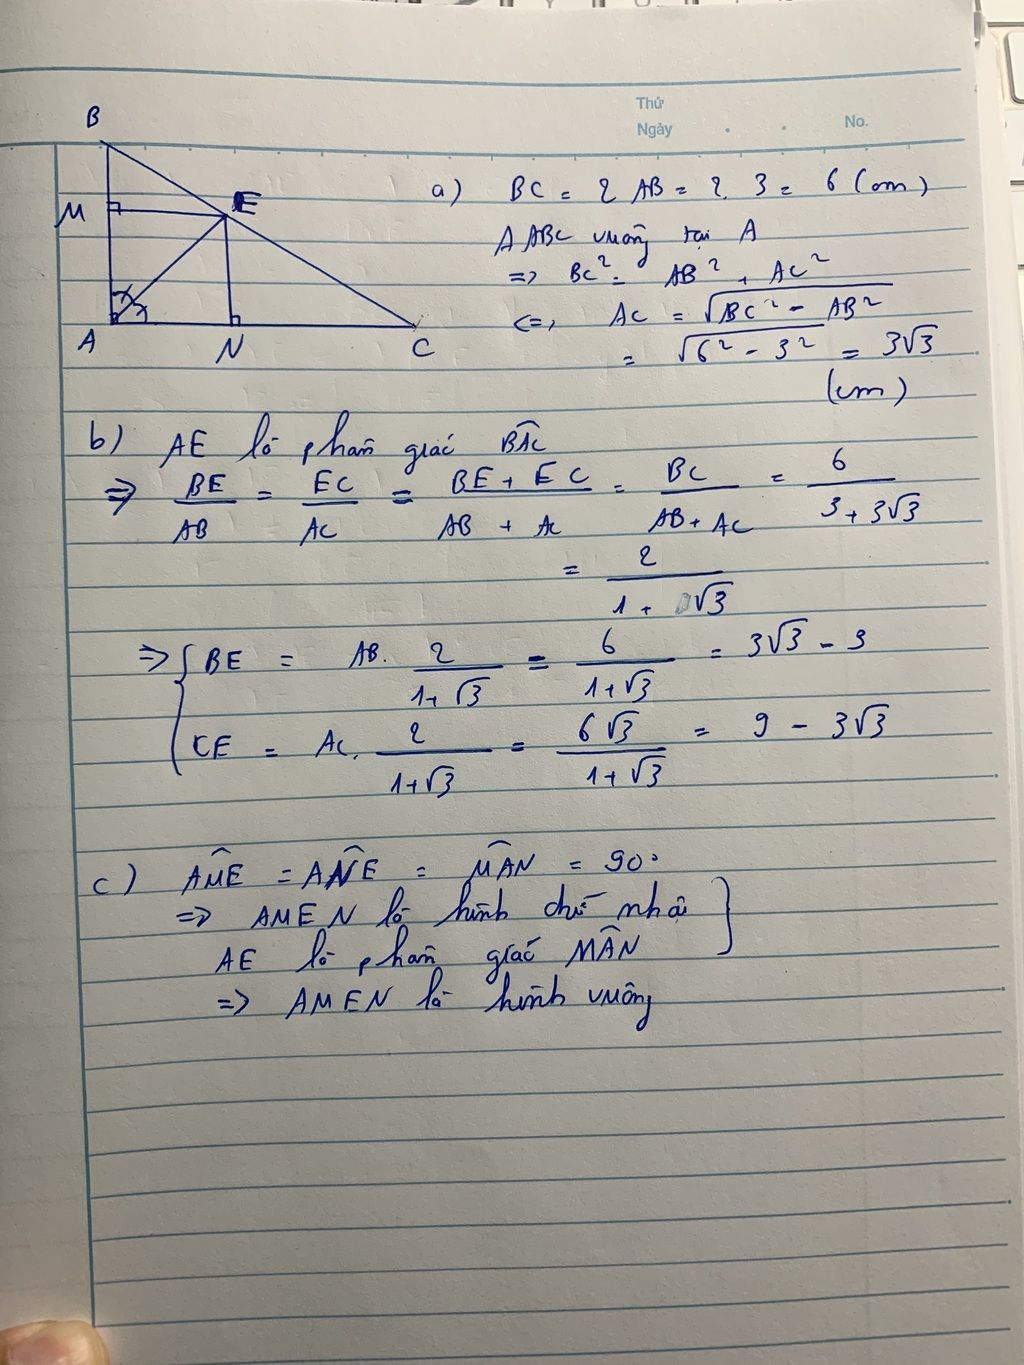 Thứ
Ngày . . No.
B
M
E
A
N
C
a) BC = 2 AB = 2. 3 = 6 (cm)
Δ ABC vuông tại A
=> BC² = AB² + AC²
<=> AC = √(BC² - AB²)
= √(6² - 3²) = 3√3
(cm)
b) AE là phân giác BÂC
=> BE/AB = EC/AC = (BE + EC)/(AB + AC) = BC/(AB + AC) = 6/(3 + 3√3)
= 2/(1 + √3)
=> { BE = AB. 2/(1+√3) = 6/(1+√3) = 3√3 - 3
CE = AC. 2/(1+√3) = 6√3/(1+√3) = 9 - 3√3
c) AM̂E = AN̂E = MÂN = 90°
=> AMEN là hình chữ nhật }
AE là phân giác MÂN
=> AMEN là hình vuông